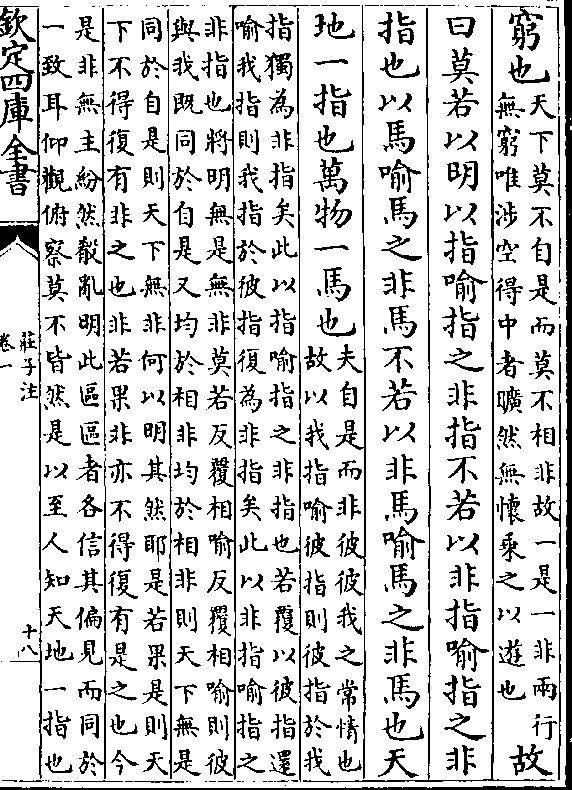 窮也
天下莫不自是而莫不相非故一是一非兩行
無窮唯涉空得中者曠然無懷乗之以遊也
故
曰莫若以明以指喻指之非指不若以非指喻指之非
指也以馬喻馬之非馬不若以非馬喻馬之非馬也天
地一指也萬物一馬也
夫自是而非彼彼我之常情也
故以我指喻彼指則彼指於我
指獨為非指矣此以指喻指之非指也若覆以彼指還
喻我指則我指於彼指復為非指矣此以非指喻指之
非指也將明無是無非莫若反覆相喻反覆相喻則彼
與我既同於自是又均於相非均於相非則天下無是
同於自是則天下無非何以明其然耶是若果是則天
下不得復有非之也非若果非亦不得復有是之也今
是非無主紛然殽亂明此區區者各信其偏見而同於
一致耳仰觀俯察莫不皆然是以至人知天地一指也
欽定四庫全書
莊子注
卷一
十八